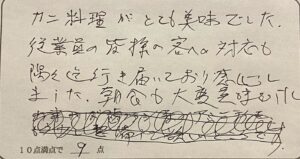 カニ料理がとても美味でした。
従業員の皆様の客への対応も
隅々迄行き届いており感心し
ました。朝食も大変美味
10点満点で 9 点